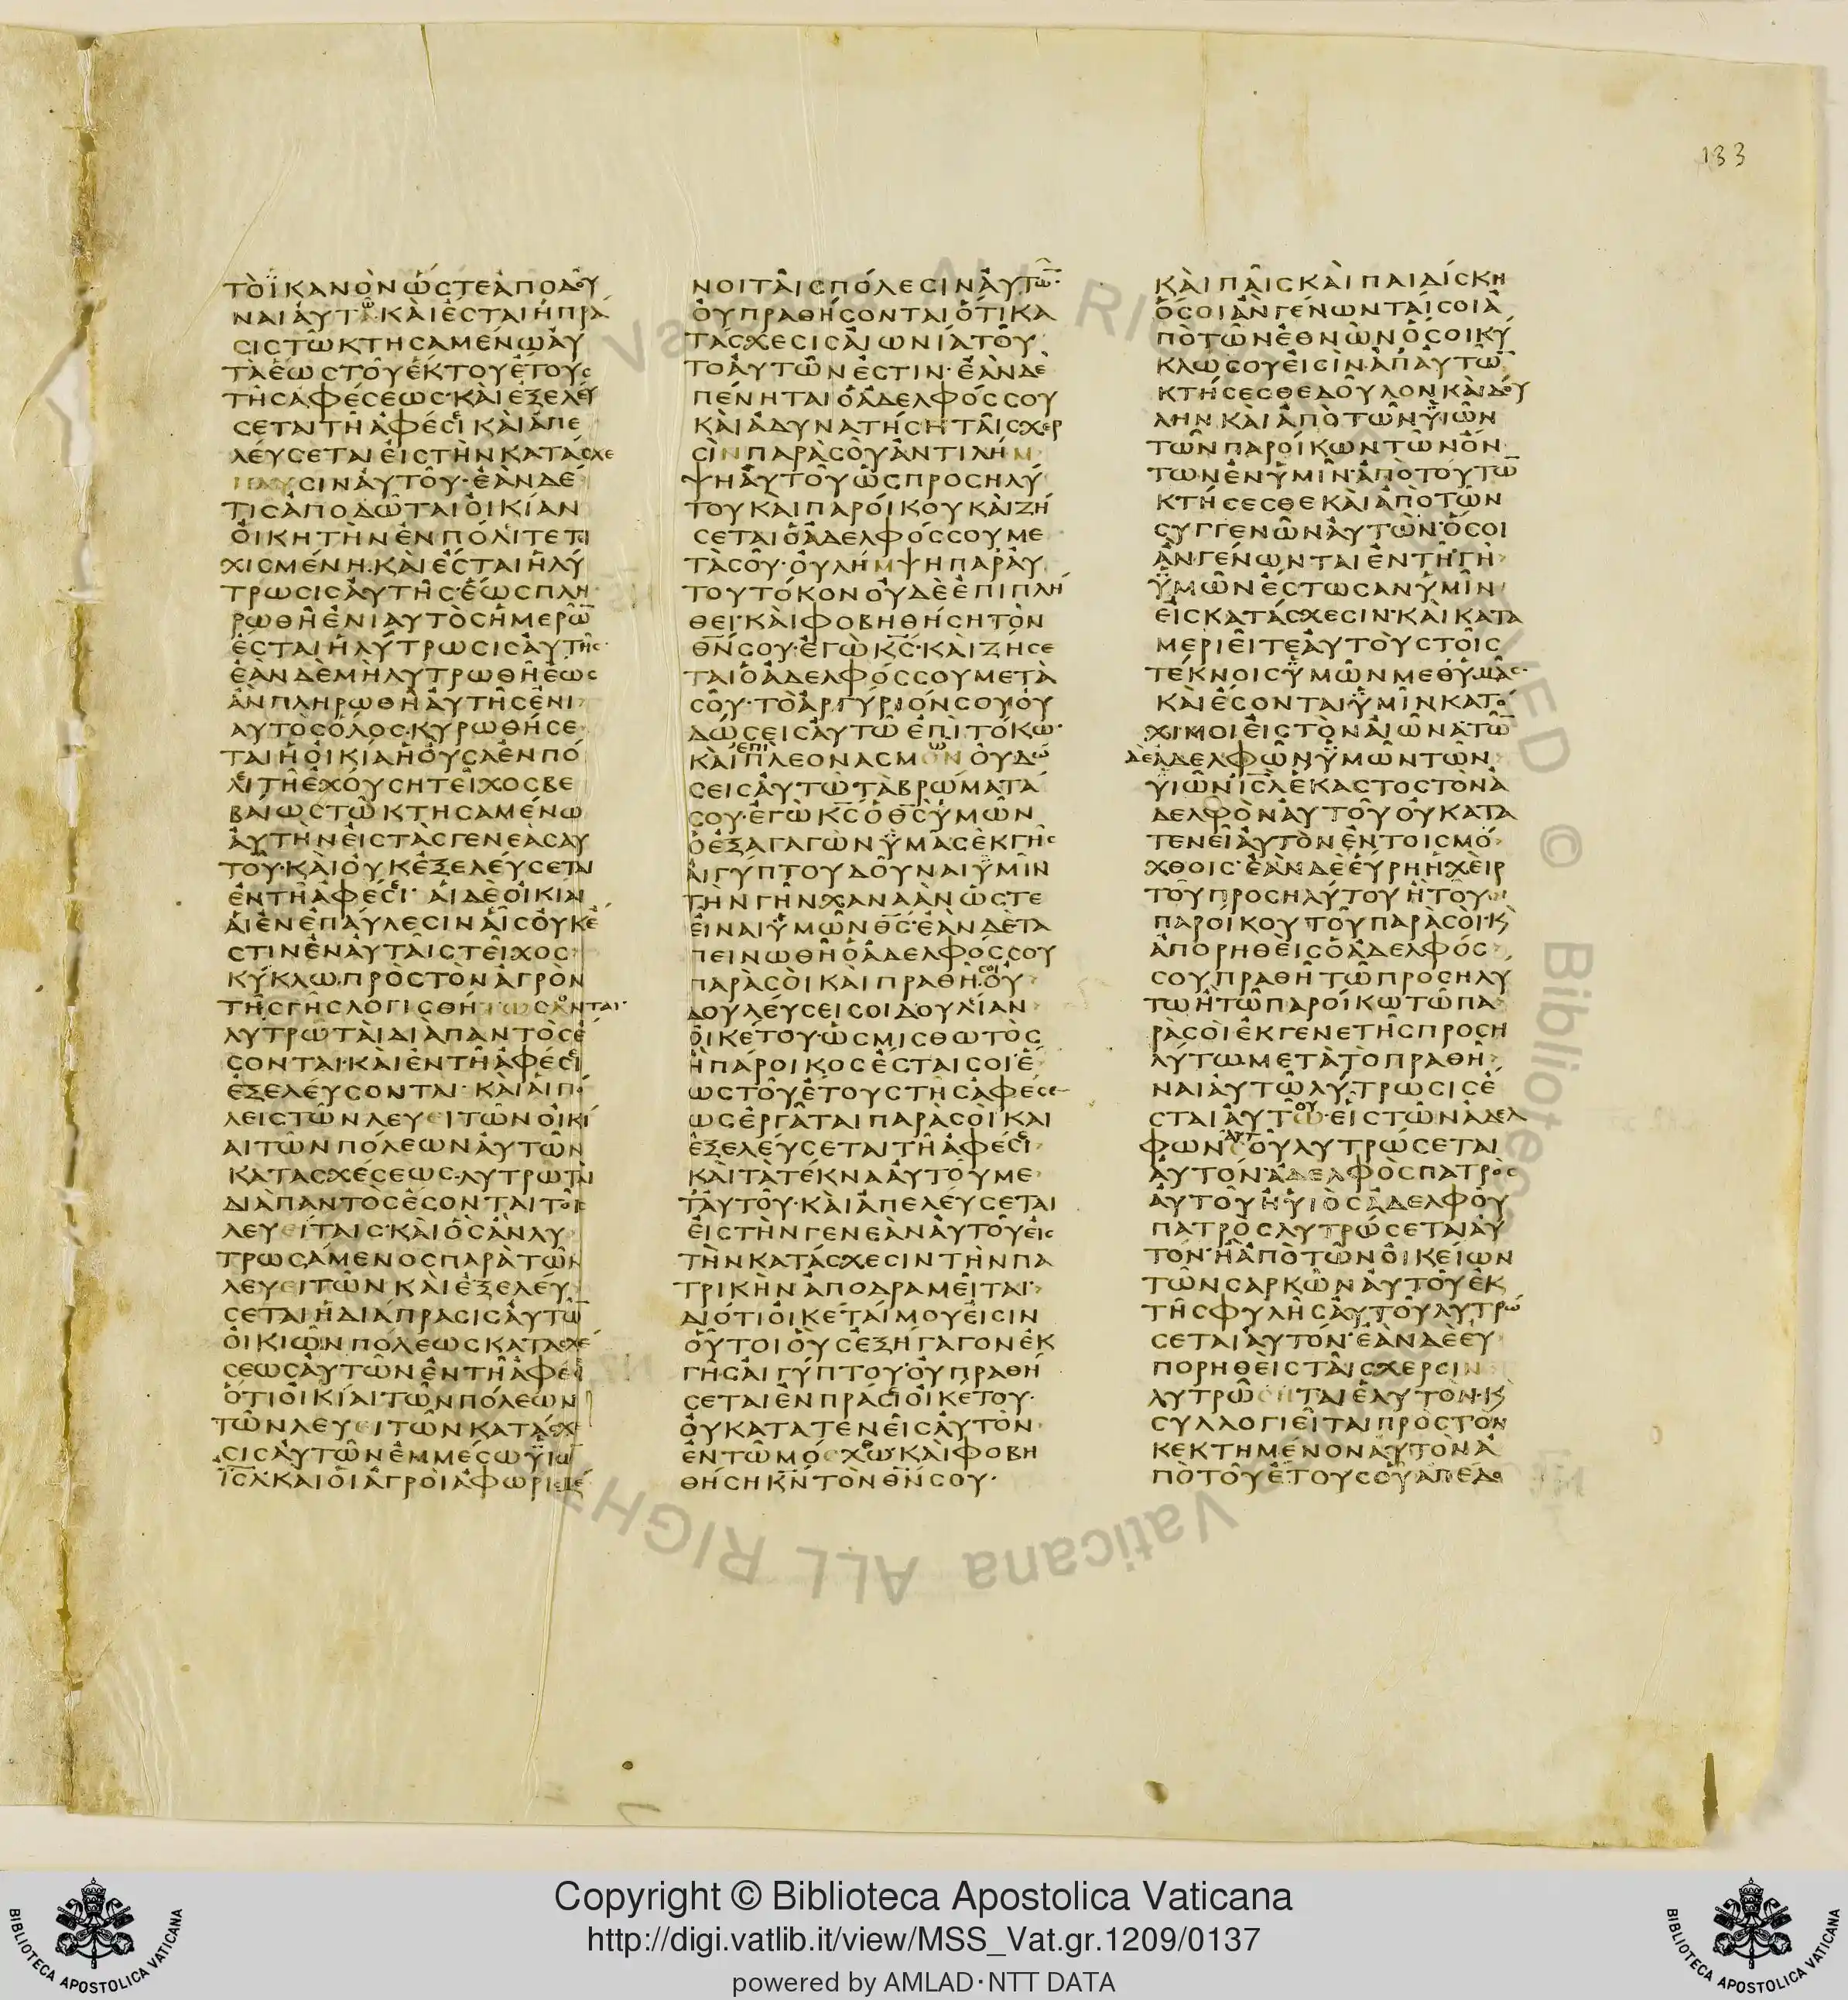 133
ΤῸΪΚΑΝῸΝὭΣΤΕἈΠΟΔΟΥ͂
ΝΑΙἈΥΤΩ͂·ΚΑῚἘΣΤΑΙἩΠΡΑ͂
ΣΙΣΤΩ͂ΚΤΗΣΑΜΈΝΩΑΥ
ΤᾺἝΩΣΤΟΥ͂ἝΚΤΟΥἜΤΟΥΣ
ΤΗ͂ΣΑΦΈΣΕΩΣ·ΚΑῚἘΞΕΛΕΎ
ΣΕΤΑΙΤΗ͂ἈΦΈΣΕΙΚΑῚἈΠΕ
ΛΕΎΣΕΤΑΙΕἸΣΤῊΝΚΑΤΆΣΧΕ
ΣΙΝἈΥΤΟΥ͂·ἘᾺΝΔΈ
ΤΙΣἈΠΟΔΩ͂ΤΑΙΟἸΚΊΑΝ
ΟἸΚΗΤῊΝἘΝΠΌΛΕΙΤΕΤΙ
ΧΙΣΜΈΝΗ·ΚΑῚἜΣΤΑΙἩΛΎ
ΤΡΩΣΙΣἈΥΤΗ͂Σ·ἝΩΣΠΛΗ
ΡΩΘΗ͂ἘΝΙΑΥΤῸΣἩΜΕΡΩ͂
ἜΣΤΑΙἩΛΎΤΡΩΣΙΣἈΥΤΗ͂Σ·
ἘᾺΝΔῈΜῊΛΥΤΡΩΘΗ͂ἝΩΣ
ἊΝΠΛΗΡΩΘΗ͂ἈΥΤΗ͂ΣἘΝΙ
ΑΥΤῸΣὍΛΟΣ·ΚΥΡΩΘΉΣΕ
ΤΑΙἩΟἸΚΊΑἩΟΥ͂ΣΑἘΝΠΌ
ΛΕΙΤΗ͂ἘΧΟΎΣΗΤΕΙ͂ΧΟΣΒΕ
ΒΑΊΩΣΤΩ͂ΚΤΗΣΑΜΈΝΩ
ἈΥΤῊΝΕἸΣΤᾺΣΓΕΝΕᾺΣΑΥ
ΤΟΥ͂·ΚΑῚΟΥΚἘΞΕΛΕΎΣΕΤΑΙ
ἘΝΤΗ͂ἈΦΈΣΕΙ· ΑἹΔΕΟἸΚΙΑΙ
ΑἹἘΝἘΠΑΎΛΕΣΙΝΑἿΣΟΥΚΈ
ΣΤΙΝἘΝΑΥΤΑΙ͂ΣΤΕΙ͂ΧΟΣ
ΚΎΚΛΩ·ΠΡῸΣΤῸΝἈΓΡῸΝ
ΤΗ͂ΣΓΗ͂ΣΛΟΓΙΣΘΉΣΟΝΤΑΙ·
ΛΥΤΡΩΤᾺΙΔΙΑΠΑΝΤῸΣἜ
ΣΟΝΤΑΙ·ΚΑῚἘΝΤΗ͂ΑΦΈΣΕΙ
ἘΞΕΛΕΎΣΟΝΤΑΙ· ΚΑΙΑΙΠΌ
ΛΕΙΣΤΩ͂ΝΛΕΥΕΙΤΩ͂ΝΟἸΚΊ
ΑΙΤΩ͂ΝΠΌΛΕΩΝἈΥΤΩ͂Ν
ΚΑΤΑΣΧΈΣΕΩΣ·ΛΥΤΡΩΤΑΙ
ΔΙᾺΠΑΝΤῸΣἜΣΟΝΤΑΙΤΟΙ͂Σ
ΛΕΥΕΊΤΑΙΣ·ΚΑῚὋΣἊΝΛΥ
ΤΡΩΣΆΜΕΝΟΣΠΑΡᾺΤΩ͂Ν
ΛΕΥΕΙΤΩ͂ΝΚΑῚἘΞΕΛΕΎ
ΣΕΤΑΙἩΔΙΆΠΡΑΣΙΣἈΥΤΩ͂
ΟἸΚΙΩ͂ΝΠΌΛΕΩΣΚΑΤΑΣΧΈ
ΣΕΩΣΑΥΤΩ͂ΝἘΝΤΗ͂ἈΦΈΣΕΙ
ὍΤΙΟἸΚΊΑΙΤΩ͂ΝΠΌΛΕΩΝ
ΤΩ͂ΝΛΕΥΕΙΤΩ͂ΝΚΑΤΆΣΧΕ
ΣΙΣἈΥΤΩ͂ΝἘΜΜΈΣΩΥΪΩ͂
ΙΣΛ·ΚΑΙΟἹἈΓΡΟῚἈΦΩΡΙΣΜΈ
ΝΟΙΤΑΙ͂ΣΠΌΛΕΣΙΝΑΥΤΩ͂·
ΟΥΠΡΑΘΉΣΟΝΤΑΙὍΤΙΚΑ
ΤΆΣΧΕΣΙΣΑἸΩΝΊΑΤΟΥ͂
ΤΟἈΥΤΩ͂ΝἘΣΤΙΝ·ἘᾺΝΔῈ
ΠΈΝΗΤΑΙὉἈΔΕΛΦΌΣΣΟΥ
ΚΑῚἈΔΥΝΑΤΉΣΗΤΑΙ͂ΣΧΕΡ
ΣῚΝΠΑΡᾺΣΟῪἈΝΤΙΛΉΜ
ΨΗἈΥΤΟΥ͂ὩΣΠΡΟΣΗΛΎ
ΤΟΥΚΑΙΠΑΡΟΊΚΟΥΚΑῚΖΉ
ΣΕΤΑΙὉἈΔΕΛΦΌΣΣΟΥΜΕ
ΤᾺΣΟΥ͂·ΟΥΛΉΜΨΗΠΑΡΑΥ
ΤΟΥΤΌΚΟΝΟΥΔῈἘΠΙΠΛΗ
ΘΕΙ·ΚΑῚΦΟΒΗΘΉΣΗΤῸΝ
ΘΝΣΟΥ·ἘΓῺΚΣ·ΚΑῚΖΉΣΕ
ΤΑΙὉἈΔΕΛΦΌΣΣΟΥΜΕΤᾺ
ΣΟΥ͂·ΤῸἈΡΓΎΡΙΌΝΣΟΥΟΥ
ΔΏΣΕΙΣἈΥΤΩ͂ἘΠῚΤΌΚΩ·
ΚΑῚἘΠΙΠΛΕΟΝΑΣΜΩΟΥΔΏ
ΣΕΙΣΑΥΤΩ͂ΤᾺΒΡΏΜΑΤΆ
ΣΟΥ·ἘΓῺΚΣὉΘΣΫΜΩ͂Ν
ὉἘΞΑΓΑΓῺΝΫΜΑΣἘΚΓΗ͂Σ
ΑἸΓΎΠΤΟΥΔΟΥ͂ΝΑΙΫΜΙ͂Ν
ΤῊΝΓΗ͂ΝΧΑΝΑᾺΝὭΣΤΕ
ΕἸΝΑΙΫΜΩ͂ΝΘΣ·ἘᾺΝΔῈΤΑ
ΠΕΙΝΩΘΗ͂ὉἈΔΕΛΦΌΣΣΟΥ
ΠΑΡᾺΣΟῚΚΑῚΠΡΑΘΗ͂ΣΟΙΟΥ
ΔΟΥΛΕΎΣΕΙΣΟΙΔΟΥΛΕΊΑΝ
ΟἸΚΈΤΟΥ·ὩΣΜΙΣΘΩΤῸΣ
ἪΠΆΡΟΙΚΟΣἜΣΤΑΙΣΟΙ·Ἕ
ΩΣΤΟΥ͂ἜΤΟΥΣΤΗ͂ΣἈΦΈΣΕ
ΩΣἘΡΓΑ͂ΤΑΙΠΑΡᾺΣΟῚΚΑΙ
ἘΞΕΛΕΎΣΕΤΑΙΤΗ͂ἈΦΈΣΕΙ
ΚΑῚΤᾺΤΈΚΝΑἈΥΤΟΥ͂ΜΕ
ΤΑΥΤΟΥ͂·ΚΑῚἈΠΕΛΕΎΣΕΤΑΙ
ΕἸΣΤῊΝΓΕΝΕᾺΝἈΥΤΟΥ͂ΕἸΣ
ΤῊΝΚΑΤΆΣΧΕΣΙΝΤῊΝΠΑ
ΤΡΙΚῊΝἈΠΟΔΡΑΜΕΙ͂ΤΑΙ·
ΔΙΌΤΙΟἸΚΈΤΑΙΜΟΥΕἸΣΙΝ
ΟΥ͂ΤΟΙΟΥΣἘΞΉΓΑΓΟΝἘΚ
ΓΗ͂ΣΑἸΓΎΠΤΟΥ·ΟΥΠΡΑΘΉ
ΣΕΤΑΙἘΝΠΡΆΣΕΙΟἸΚΈΤΟΥ·
ΟΥΚΑΤΑΤΕΝΕΙ͂ΣἈΥΤῸΝ
ἘΝΤΩ͂ΜΌΧΘΩ·ΚΑῚΦΟΒΗ
ΘΉΣΗΚΝΤῸΝΘΝΣΟΥ·
ΚΑῚΠΑΙ͂ΣΚΑῚΠΑΙΔΊΣΚΗ
ὍΣΟΙἊΝΓΈΝΩΝΤΑΊΣΟΙἈ
ΠῸΤΩ͂ΝἘΘΝΩ͂ΝὍΣΟΙΚΎ
ΚΛΩΣΟΥΕἸΣῚΝ·ἈΠΑΥΤΩ͂
ΚΤΉΣΕΣΘΕΔΟΥ͂ΛΟΝΚΑῚΔΟΎ
ΛΗΝ·ΚΑῚἈΠῸΤΩ͂ΝΫΪΩ͂Ν
ΤΩ͂ΝΠΑΡΟΊΚΩΝΤΩ͂ΝὌΝ
ΤΩΝἘΝΫΜΙ͂Ν·ἈΠῸΤΟΥΤΩ
ΚΤΉΣΕΣΘΕΚΑῚἈΠῸΤΩ͂Ν
ΣΥΓΓΕΝΩ͂ΝἈΥΤΩ͂Ν·ὍΣΟΙ
ἊΝΓΈΝΩΝΤΑΙἘΝΤΗ͂ΓΗ͂
ΫΜΩ͂ΝἜΣΤΩΣΑΝΫΜΙ͂Ν
ΕἸΣΚΑΤΆΣΧΕΣΙΝ·ΚΑῚΚΑΤΑ
ΜΕΡΙΕΙ͂ΤΕἈΥΤΟῪΣΤΟΙ͂Σ
ΤΈΚΝΟΙΣΫΜΩ͂ΝΜΕΘΫΜΑ͂Σ·
ΚΑῚἜΣΟΝΤΑΙΫΜΙ͂ΝΚΑΤΟ
ΧΙΜΟΙΕἸΣΤῸΝΑἸΩ͂ΝΑ·ΤΩ͂
ΔΕἈΔΕΛΦΩ͂ΝΫΜΩ͂ΝΤΩ͂Ν
ΥΪΩ͂ΝΙΣΛἝΚΑΣΤΟΣΤῸΝἈ
ΔΕΛΦῸΝἈΥΤΟΥ͂ΟΥΚΑΤΑ
ΤΕΝΕΙ͂ἈΥΤῸΝἘΝΤΟΙΣΜΌ
ΧΘΟΙΣ·ἘᾺΝΔῈΕΥΡΗἩΧῈΙΡ
ΤΟΥ͂ΠΡΟΣΗΛΎΤΟΥἪΤΟΥ͂
ΠΑΡΟΊΚΟΥΤΟΥ͂ΠΑΡᾺΣΟΊ·Κ
ἈΠΟΡΗΘΕῚΣὉἈΔΕΛΦΌΣ
ΣΟΥΠΡΑΘΗ͂ΤΩ͂ΠΡΟΣΗΛΥ
ΤΩἪΤΩ͂ΠΑΡΟΊΚΩΤΩ͂ΠΑ
ΡᾺΣΟΊἘΚΓΕΝΕΤΗ͂ΣΠΡΟΣΗ
ΛΎΤΩ·ΜΕΤᾺΤῸΠΡΑΘΗ͂
ΝΑΙἈΥΤΩ͂ΛΎΤΡΩΣΙΣἜ
ΣΤΑΙἈΥΤΟΥ·ΕἹΣΤΩ͂ΝἈΔΕΛ
ΦΩ͂ΝΑΥΤΟΥΛΥΤΡΏΣΕΤΑΙ
ἈΥΤΌΝ·ἈΔΕΛΦῸΣΠΑΤΡῸΣ
ἈΥΤΟΥ͂ἪΥΙῸΣἈΔΕΛΦΟΥ͂
ΠΑΤΡῸΣΛΥΤΡΏΣΕΤΑΙΑΥ
ΤΟΝ·ἪἈΠῸΤΩ͂ΝΟἸΚΕΙΩΝ
ΤΩ͂ΝΣΑΡΚΩ͂ΝἈΥΤΟΥ͂ἘΚ
ΤΗ͂ΣΦΥΛΗ͂ΣἈΥΤΟΥ͂ΛΥΤΡΏ
ΣΕΤΑΙἈΥΤΌΝ·ἘᾺΝΔῈΕΥ
ΠΟΡΗΘΕῚΣΤΑΙ͂ΣΧΕΡΣΙΝ
ΛΥΤΡΩ͂ΤΑΙἙΑΥΤΟΝ·Κ
ΣΥΛΛΟΓΙΕΙ͂ΤΑΙΠΡῸΣΤῸΝ
ΚΕΚΤΗΜΈΝΟΝἈΥΤῸΝἈ
ΠῸΤΟΥ͂ἜΤΟΥΣΟΥἈΠΈΔΟ
Copyright © Biblioteca Apostolica Vaticana
http://digi.vatlib.it/view/MSS_Vat.gr.1209/0137
powered by AMLAD·NTT DATA
BIBLIOTECA APOSTOLICA VATICANA
BIBLIOTECA APOSTOLICA VATICANA